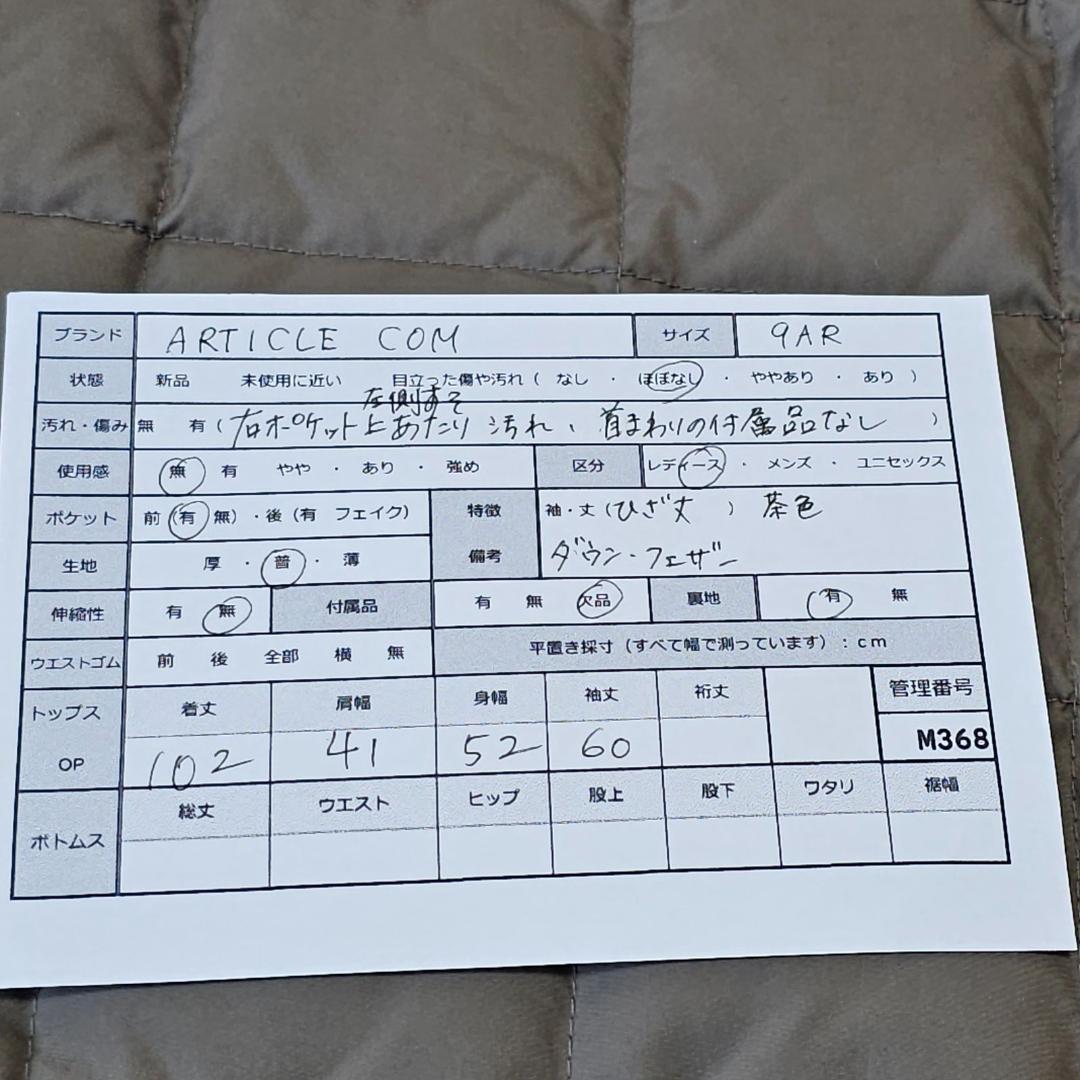 ブランド ARTICLE COM サイズ 9AR
状態 新品 未使用に近い 目立った傷や汚れ( なし ・ ほぼなし ・ ややあり ・ あり )
左側すそ
汚れ・傷み 無 有 ( 右ポケット上あたり 汚れ、首まわりの付属品なし )
使用感 無 有 やや ・ あり ・ 強め 区分 レディース ・ メンズ ・ ユニセックス
ポケット 前(有 無)・後(有 フェイク) 特徴 袖・丈(ひざ丈 ) 茶色
生地 厚 ・ 普 ・ 薄 備考 ダウン・フェザー
伸縮性 有 無 付属品 有 無 欠品 裏地 有 無
ウエストゴム 前 後 全部 横 無 平置き採寸(すべて幅で測っています):cm
トップス 着丈 肩幅 身幅 袖丈 裄丈 管理番号
OP 102 41 52 60 M368
ボトムス 総丈 ウエスト ヒップ 股上 股下 ワタリ 裾幅